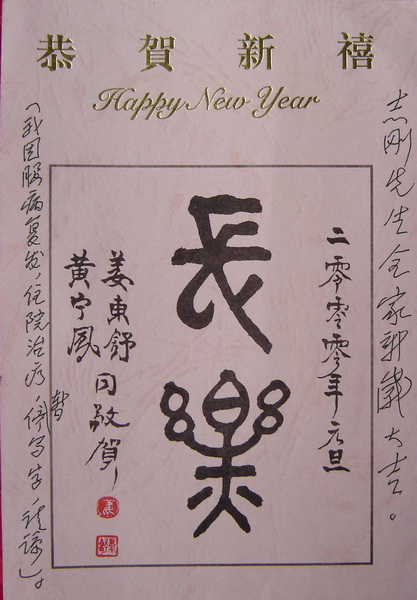 恭賀新禧
Happy New Year
志刚先生全家新歲大吉。
二零零零年元旦
長樂
姜東舒
黃宁鳳
同敬賀
（我因眼病复发，住院治疗，暂停写字，请谅）。